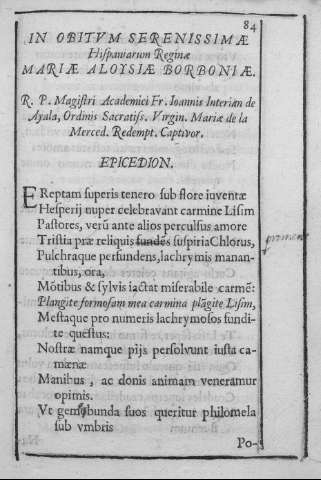 84
IN OBITVM SERENISSIMÆ
Hispaniarum Reginæ
MARIÆ ALOYSIÆ BORBONIÆ.
R. P. Magistri Academici Fr. Ioannis Interian de
Ayala, Ordinis Sacratiss. Virgin. Mariæ de la
Merced. Redempt. Captivor.
EPICEDION.
EReptam superis tenero sub flore iuventæ
Hesperij nuper celebravant carmine Lisim
Pastores, verũ ante alios perculsus amore
Tristia præ reliquis fundẽs suspiria Chlorus,
Pulchraque perfundens, lachrymis manan-
tibus, ora,
Mõtibus & sylvis iactat miserabile carmẽ:
Plangite formosam mea carmina plãgite Lisim,
Mestaque pro numeris lachrymosos fundi-
te questus:
Nostræ namque pijs persolvunt iusta ca-
mœnæ
Manibus, ac donis animam veneramur
opimis.
Vt gemebunda suos queritur philomela
sub vmbris
Po-